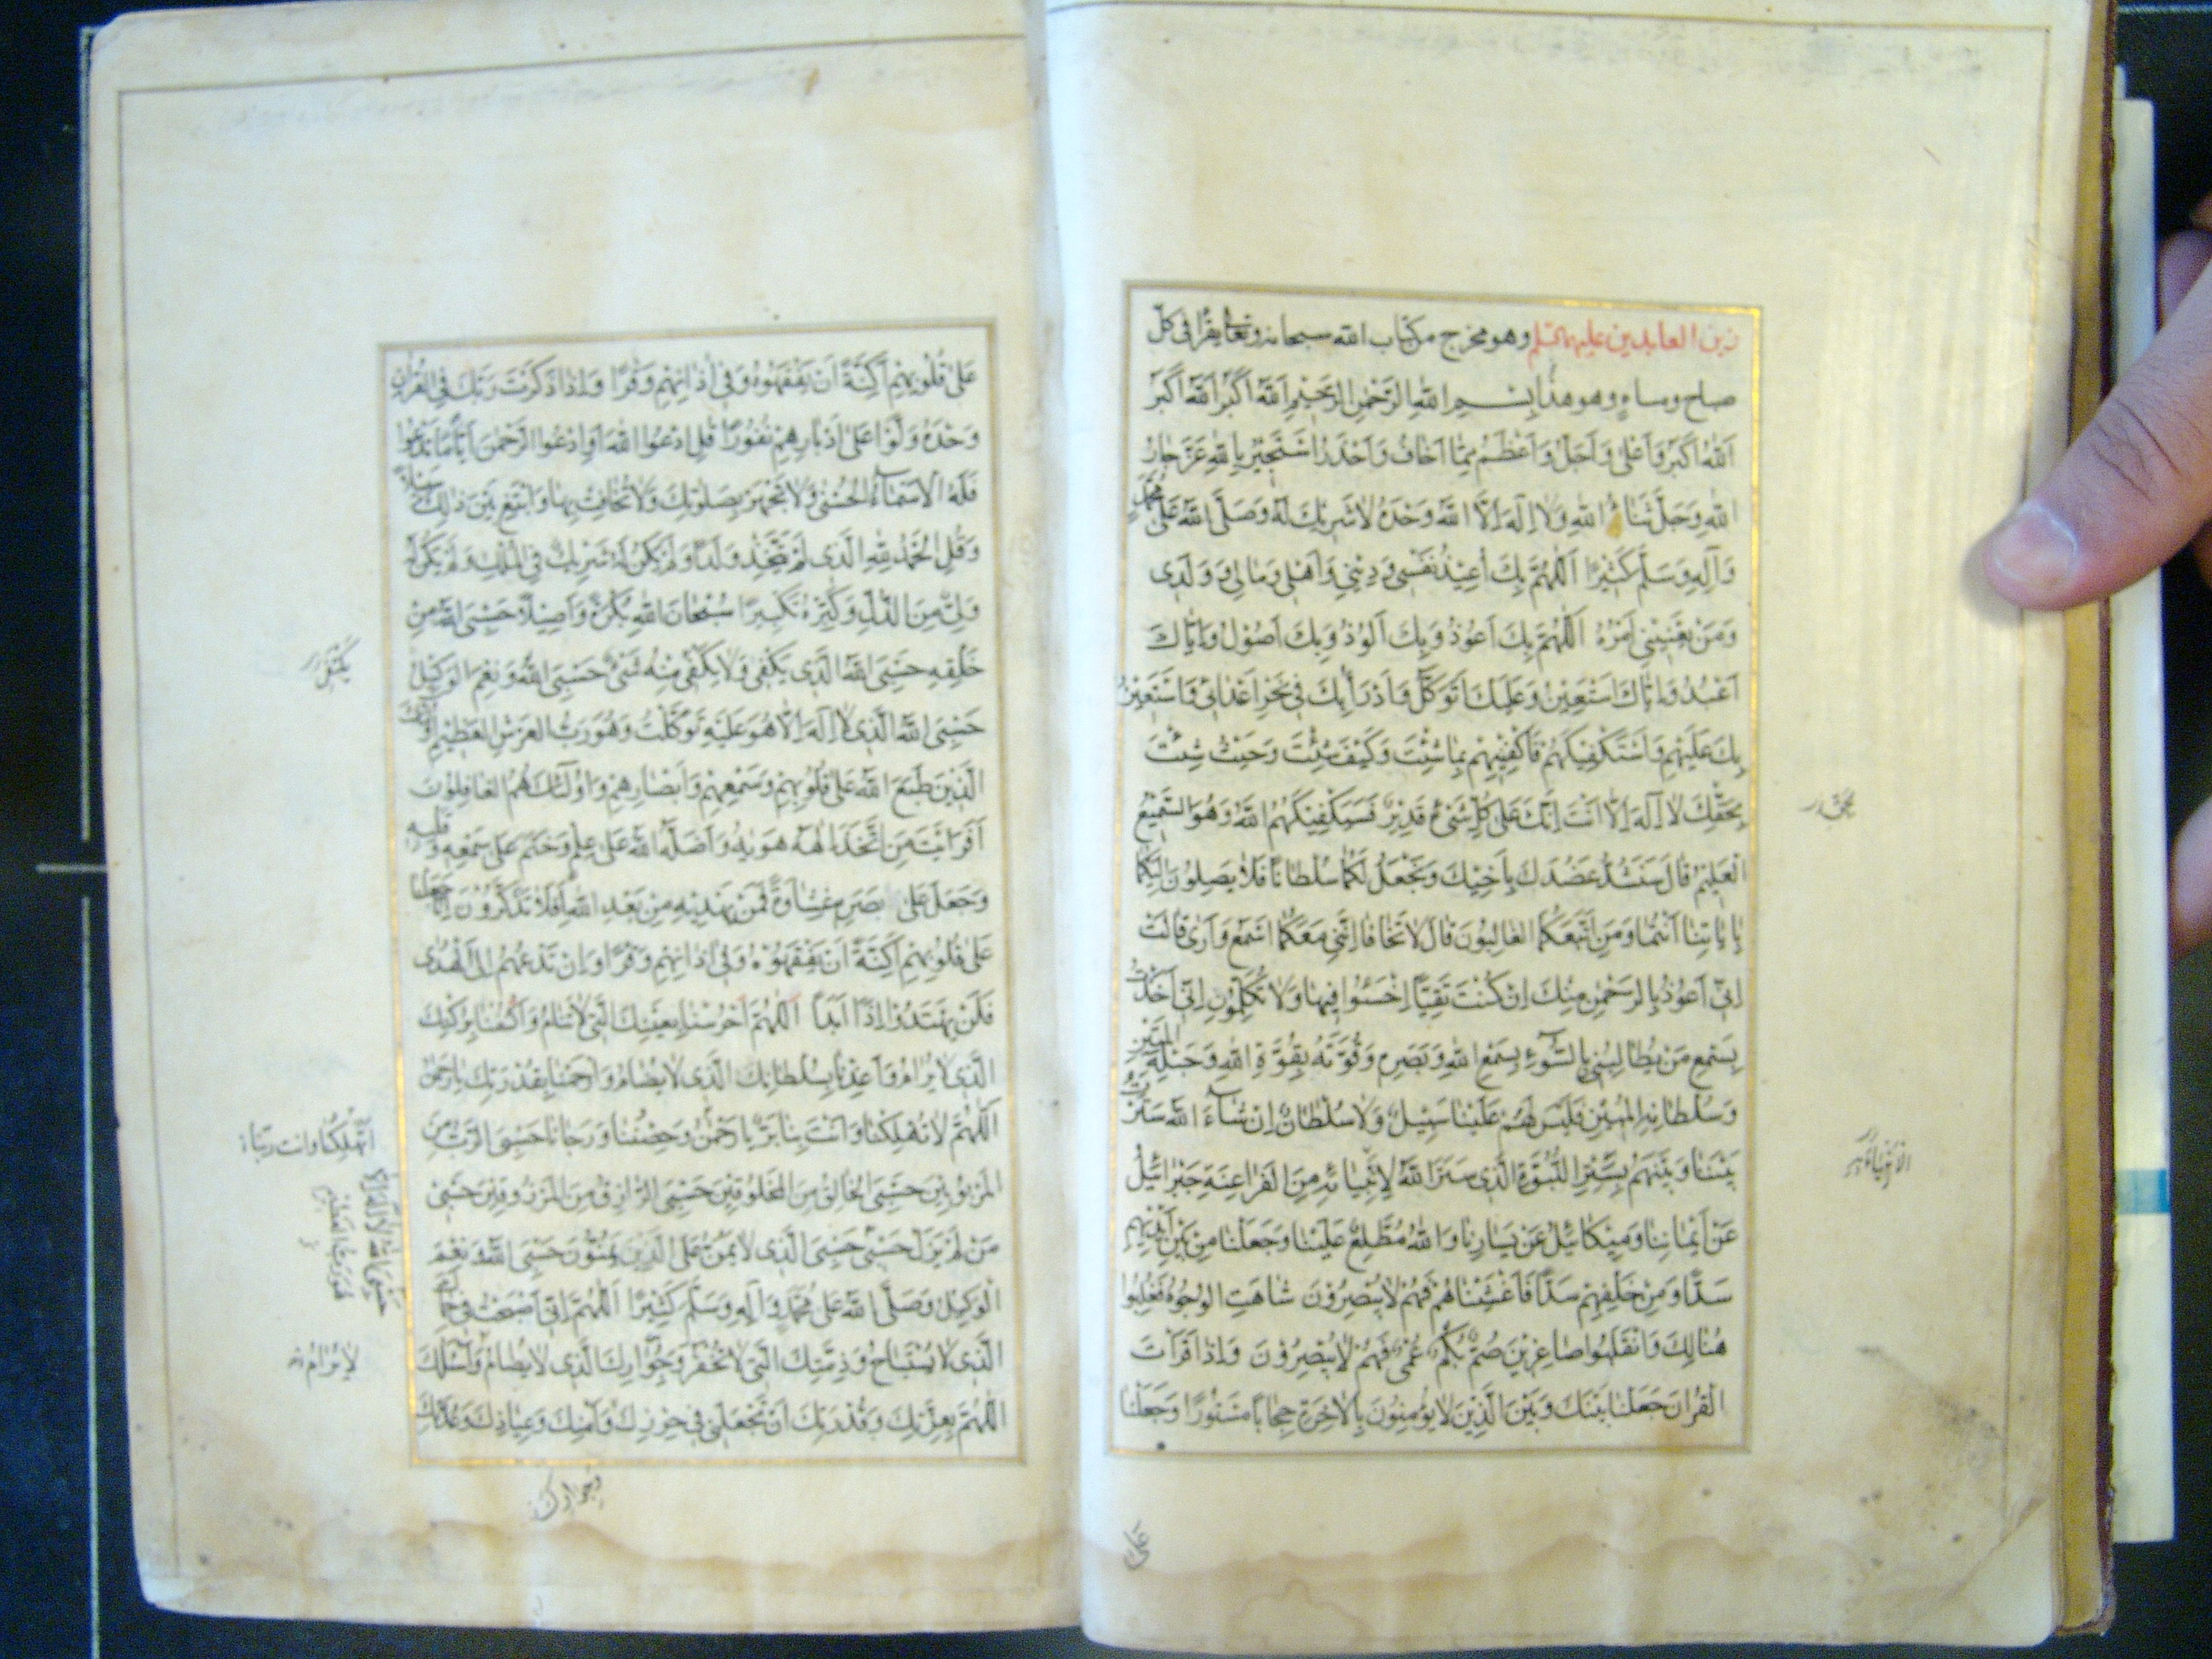 زين العابدين عليهما السلم وهو مخرج من كتاب الله سبحانه وتعالى يقرأ في كل
صباح ومساء وهو هذا بسم الله الرحمن الرحيم الله اكبر الله اكبر
الله اكبر واعلى واجل واعظم مما اخاف واحذر استجير بالله عز جار
الله وجل ثناء الله ولا اله الا الله وحده لا شريك له وصلى الله على محمد
وآله وسلم كثيرا اللهم بك اعيذ نفسي وديني واهلي ومالي وولدي
ومن يعنيني امره اللهم بك اعوذ وبك الوذ وبك اصول واياك
اعبد واياك استعين وعليك اتوكل وادرأ بك في نحر اعدائي واستعين
بك عليهم واستكفيكهم فاكفنيهم بما شئت وكيف شئت وحيث شئت
بحقك لا اله الا انت انك على كل شيء قدير فسيكفيكهم الله وهو السميع
العليم قال سنشد عضدك باخيك ونجعل لكما سلطانا فلا يصلون اليكما
باياتنا انتما ومن اتبعكما الغالبون قال لا تخافا انني معكما اسمع وارى قالت
اني اعوذ بالرحمن منك ان كنت تقيا اخسئوا فيها ولا تكلمون اني اخذت
بسمع من يطالبني بالسوء بسمع الله وبصره وقوته بقوة الله وحبله المتين
وسلطانه المبين فليس لهم علينا سبيل ولا سلطان ان شاء الله سترت
بيننا وبينهم بستر النبوة الذي ستر الله لانبيائه من الفراعنة جبرائيل
عن ايماننا وميكائيل عن يسارنا والله مطلع علينا وجعلنا من بين ايديهم
سدا ومن خلفهم سدا فاغشيناهم فهم لا يبصرون شاهت الوجوه فغلبوا
هنالك وانقلبوا صاغرين صم بكم عمي فهم لا يبصرون واذا قرات
القران جعلنا بينك وبين الذين لا يؤمنون بالاخرة حجابا مستورا وجعلنا
على
على قلوبهم اكنة ان يفقهوه وفي اذانهم وقرا واذا ذكرت ربك في القران
وحده ولوا على ادبارهم نفورا قل ادعوا الله او ادعوا الرحمن ايا ما تدعوا
فله الاسماء الحسنى ولا تجهر بصلوتك ولا تخافت بها وابتغ بين ذلك سبيلا
وقل الحمد لله الذي لم يتخذ ولدا ولم يكن له شريك في الملك ولم يكن له
ولي من الذل وكبره تكبيرا سبحان الله بكرة واصيلا حسبي الله من
خلقه حسبي الله الذي يكفي ولا يكفي منه شيء حسبي الله ونعم الوكيل
حسبي الله الذي لا اله الا هو عليه توكلت وهو رب العرش العظيم اولئك
الذين طبع الله على قلوبهم وسمعهم وابصارهم واولئك هم الغافلون
افرايت من اتخذ الهه هويه واضله الله على علم وختم على سمعه وقلبه
وجعل على بصره غشاوة فمن يهديه من بعد الله افلا تذكرون انا جعلنا
على قلوبهم اكنة ان يفقهوه وفي اذانهم وقرا وان تدعهم الى الهدى
فلن يهتدوا اذا ابدا اللهم احرسنا بعينك التي لا تنام واكنفنا بركنك
الذي لا يرام واعذنا بسلطانك الذي لا يضام وارحمنا بقدرتك يا رحمن
اللهم لا تهلكنا وانت بنا بر يا رحمن وحصننا ورجانا حسبي الرب من
المربوبين حسبي الخالق من المخلوقين حسبي الرازق من المرزوقين حسبي
من لم يزل حسبي حسبي الذي لا يمن على الذين يمنون حسبي الله ونعم
الوكيل وصلى الله على محمد وآله وسلم كثيرا اللهم اني اصبحت في حماك
الذي لا يستباح وذمتك التي لا تخفر وجوارك الذي لا يضام واسئلك
اللهم بعزتك وقدرتك ان تجعلني في حرزك وامنك وعياذك وعدتك
اتهلكنا وانت ربنا
لا يرام